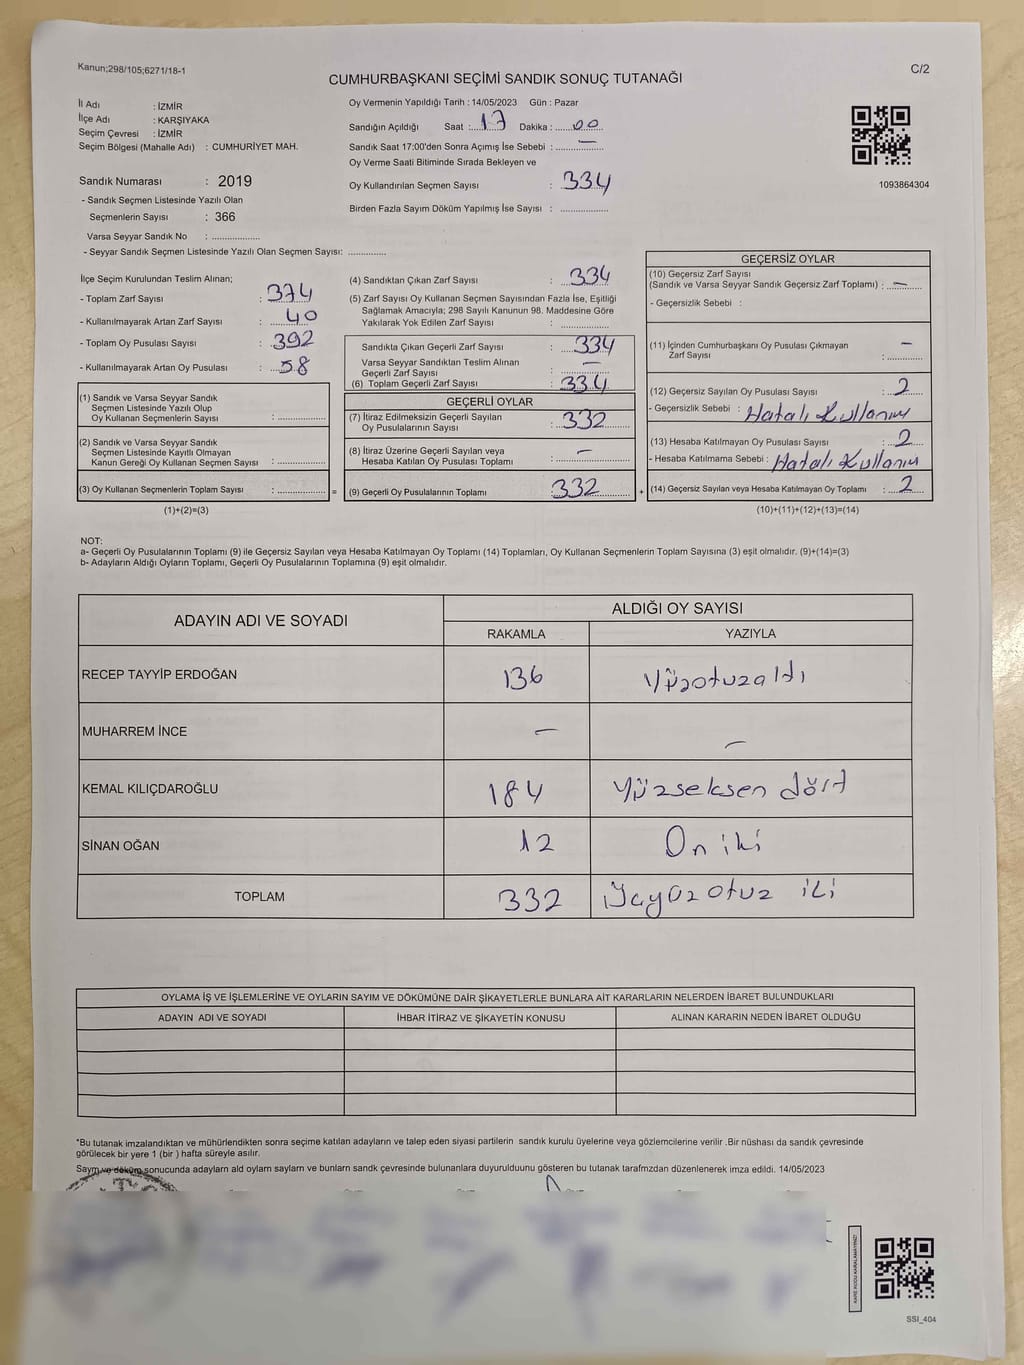 Kanun;298/105;6271/18-1
CUMHURBAŞKANI SEÇİMİ SANDIK SONUÇ TUTANAĞI
C/2
İl Adı : İZMİR
İlçe Adı : KARŞIYAKA
Seçim Çevresi : İZMİR
Seçim Bölgesi (Mahalle Adı) : CUMHURİYET MAH.
Sandık Numarası : 2019
- Sandık Seçmen Listesinde Yazılı Olan
Seçmenlerin Sayısı : 366
Varsa Seyyar Sandık No : ....................
- Seyyar Sandık Seçmen Listesinde Yazılı Olan Seçmen Sayısı: ................
Oy Vermenin Yapıldığı Tarih : 14/05/2023 Gün : Pazar
Sandığın Açıldığı Saat : 17 Dakika : 00
Sandık Saat 17:00'den Sonra Açımış İse Sebebi : —
Oy Verme Saati Bitiminde Sırada Bekleyen ve
Oy Kullandırılan Seçmen Sayısı : 334
Birden Fazla Sayım Döküm Yapılmış İse Sayısı : ....................
1093864304
İlçe Seçim Kurulundan Teslim Alınan;
- Toplam Zarf Sayısı : 374
- Kullanılmayarak Artan Zarf Sayısı : 40
- Toplam Oy Pusulası Sayısı : 392
- Kullanılmayarak Artan Oy Pusulası : 58
(1) Sandık ve Varsa Seyyar Sandık
Seçmen Listesinde Yazılı Olup
Oy Kullanan Seçmenlerin Sayısı : ....................
(2) Sandık ve Varsa Seyyar Sandık
Seçmen Listesinde Kayıtlı Olmayan
Kanun Gereği Oy Kullanan Seçmen Sayısı : ....................
(3) Oy Kullanan Seçmenlerin Toplam Sayısı : .................... =
(1)+(2)=(3)
(4) Sandıktan Çıkan Zarf Sayısı : 334
(5) Zarf Sayısı Oy Kullanan Seçmen Sayısından Fazla İse, Eşitliği
Sağlamak Amacıyla; 298 Sayılı Kanunun 98. Maddesine Göre
Yakılarak Yok Edilen Zarf Sayısı : ....................
Sandıkta Çıkan Geçerli Zarf Sayısı : 334
Varsa Seyyar Sandıktan Teslim Alınan
Geçerli Zarf Sayısı : —
(6) Toplam Geçerli Zarf Sayısı : 334
GEÇERLİ OYLAR
(7) İtiraz Edilmeksizin Geçerli Sayılan
Oy Pusulalarının Sayısı : 332
(8) İtiraz Üzerine Geçerli Sayılan veya
Hesaba Katılan Oy Pusulası Toplamı : —
(9) Geçerli Oy Pusulalarının Toplamı : 332 +
GEÇERSİZ OYLAR
(10) Geçersiz Zarf Sayısı
(Sandık ve Varsa Seyyar Sandık Geçersiz Zarf Toplamı) : —
- Geçersizlik Sebebi :
(11) İçinden Cumhurbaşkanı Oy Pusulası Çıkmayan
Zarf Sayısı : —
(12) Geçersiz Sayılan Oy Pusulası Sayısı : 2
- Geçersizlik Sebebi : Hatalı Kullanım
(13) Hesaba Katılmayan Oy Pusulası Sayısı : 2
- Hesaba Katılmama Sebebi : Hatalı Kullanım
(14) Geçersiz Sayılan veya Hesaba Katılmayan Oy Toplamı : 2
(10)+(11)+(12)+(13)=(14)
NOT:
a- Geçerli Oy Pusulalarının Toplamı (9) ile Geçersiz Sayılan veya Hesaba Katılmayan Oy Toplamı (14) Toplamları, Oy Kullanan Seçmenlerin Toplam Sayısına (3) eşit olmalıdır. (9)+(14)=(3)
b- Adayların Aldığı Oyların Toplamı, Geçerli Oy Pusulalarının Toplamına (9) eşit olmalıdır.
ADAYIN ADI VE SOYADI
ALDIĞI OY SAYISI
RAKAMLA YAZIYLA
RECEP TAYYİP ERDOĞAN 136 Yüzotuzaltı
MUHARREM İNCE — —
KEMAL KILIÇDAROĞLU 184 Yüzseksen dört
SİNAN OĞAN 12 On iki
TOPLAM 332 Üçyüzotuz iki
OYLAMA İŞ VE İŞLEMLERİNE VE OYLARIN SAYIM VE DÖKÜMÜNE DAİR ŞİKAYETLERLE BUNLARA AİT KARARLARIN NELERDEN İBARET BULUNDUKLARI
ADAYIN ADI VE SOYADI İHBAR İTİRAZ VE ŞİKAYETİN KONUSU ALINAN KARARIN NEDEN İBARET OLDUĞU
*Bu tutanak imzalandıktan ve mühürlendikten sonra seçime katılan adayların ve talep eden siyasi partilerin sandık kurulu üyelerine veya gözlemcilerine verilir .Bir nüshası da sandık çevresinde
görülecek bir yere 1 (bir ) hafta süreyle asılır.
Saym ve döküm sonucunda adayların ald oylam saylarn ve bunlarn sandk çevresinde bulunanlara duyurulduunu gösteren bu tutanak tarafmzdan düzenlenerek imza edildi. 14/05/2023
SSI_404